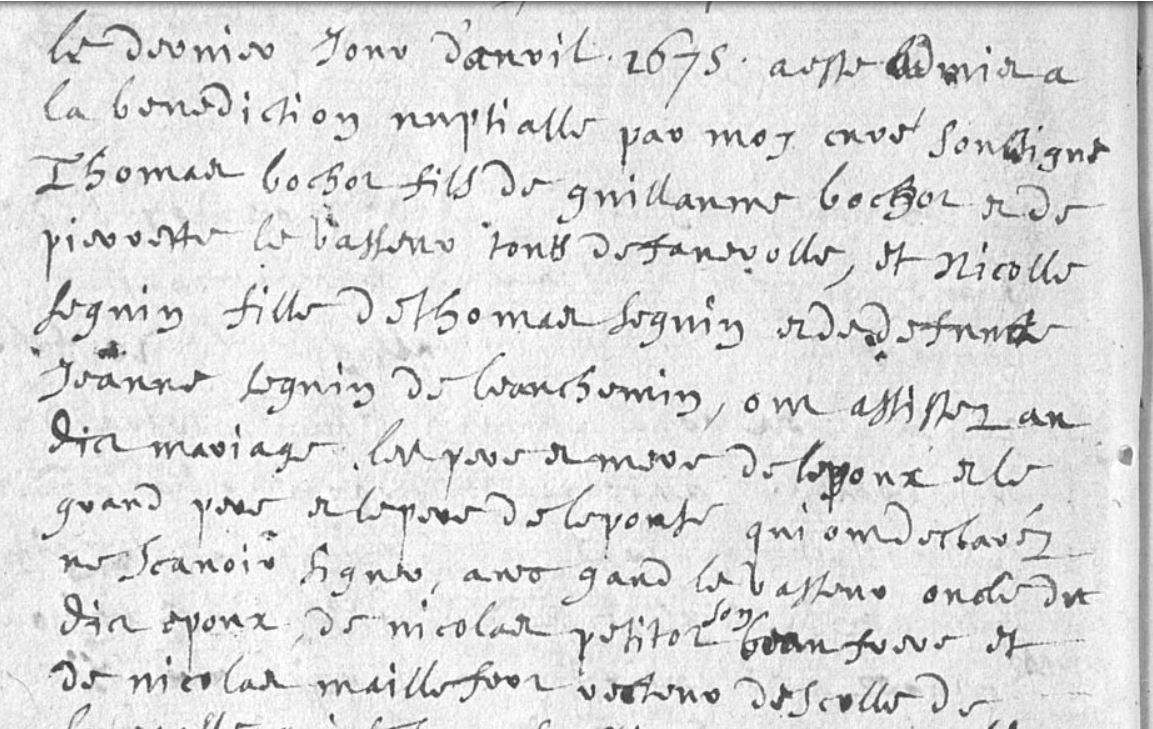 le dernier Jour d'apvril . 1675 . a este admis a
la benediction nuptialle par moy curé soubsigne
Thomas bochot fils de guillaume bochot et de
pierrette le vasseur touts de faverolle, et Nicolle
seguin fille de thomas seguin et de defuncte
Jeanne seguin de beauchemin, ont assistez au
dict mariage les pere et mere de lepoux et le
grand pere et le pere de lepouse qui ont declarez
ne scavoir signer, avec le vasseur oncle du
dict epoux, de nicolas petitot son beau frere et
de nicolas maillefert recteur descolle de